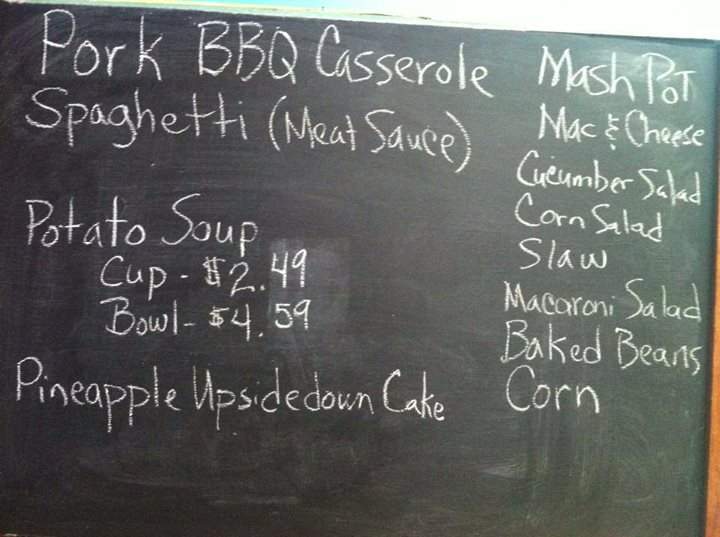 Pork BBQ Casserole
Spaghetti (Meat Sauce)
Potato Soup
Cup - $2.49
Bowl - $4.59
Pineapple Upsidedown Cake
Mash Pot
Mac & Cheese
Cucumber Salad
Corn Salad
Slaw
Macaroni Salad
Baked Beans
Corn